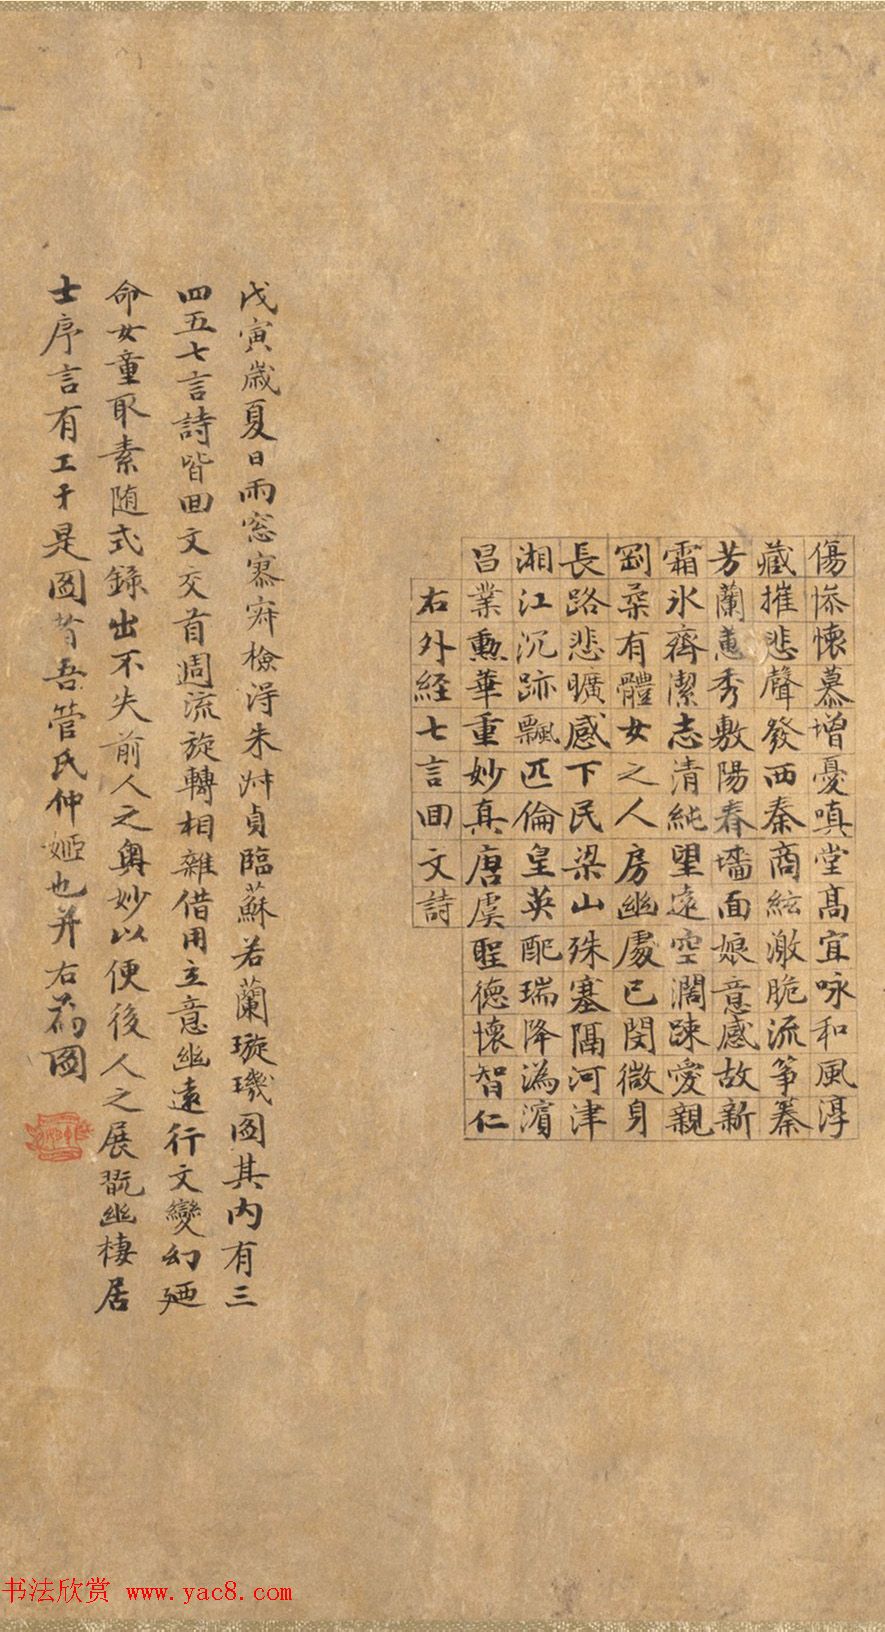 傷慘懷慕增憂嗔堂高宜咏和風淳
藏摧悲聲發西秦商絃激脆流箏蓁
芳蘭蕙秀敷陽春墻面娘意感故新
霜氷齊潔志清純望遠空濶踈愛親
剛柔有體女之人房幽處己閔微身
長路悲曠感下民梁山殊塞隔河津
湘江沉跡飄匹倫皇英配瑞降潙濵
昌業勲華重妙真唐虞聖德懷智仁
右外経七言回文詩
戊寅歳夏日雨窓寡檢淂朱貞臨蘇若蘭璇璣圖其内有三
四五七言詩皆回文交首週流旋轉相雜借用立意幽遠行文變幻廼
命女童取素随式錄出不失前人之奥妙以便後人之展翫幽棲居
士序言有工于是圖者吾管氏仲姬也并右為圖
书法欣赏 www.yac8.com